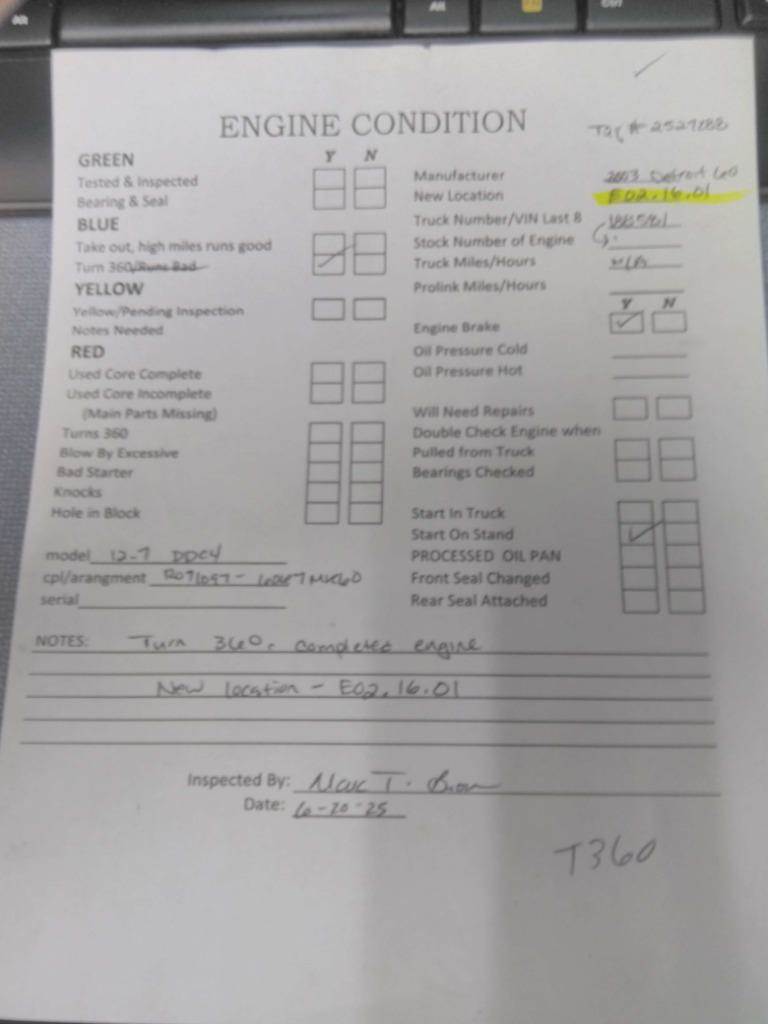 Alt
Alt
Ctrl
ENGINE CONDITION
Tag # 2527288
Y N
GREEN
Tested & Inspected
Bearing & Seal
BLUE
Take out, high miles runs good
Turn 360/Runs Bad
YELLOW
Yellow/Pending Inspection
Notes Needed
RED
Used Core Complete
Used Core Incomplete
(Main Parts Missing)
Turns 360
Blow By Excessive
Bad Starter
Knocks
Hole in Block
model 12.7 DDC4
cpl/arangment
serial
Manufacturer 2003 Detroit 60
New Location E02.16.01
Truck Number/VIN Last 8
Stock Number of Engine
Truck Miles/Hours N/A
Prolink Miles/Hours
Y N
Engine Brake
Oil Pressure Cold
Oil Pressure Hot
Will Need Repairs
Double Check Engine when
Pulled from Truck
Bearings Checked
Start In Truck
Start On Stand
PROCESSED OIL PAN
Front Seal Changed
Rear Seal Attached
NOTES: Turn 360. completed engine
New location - E02.16.01
Inspected By: Marc T.
Date: 6-20-25
T360